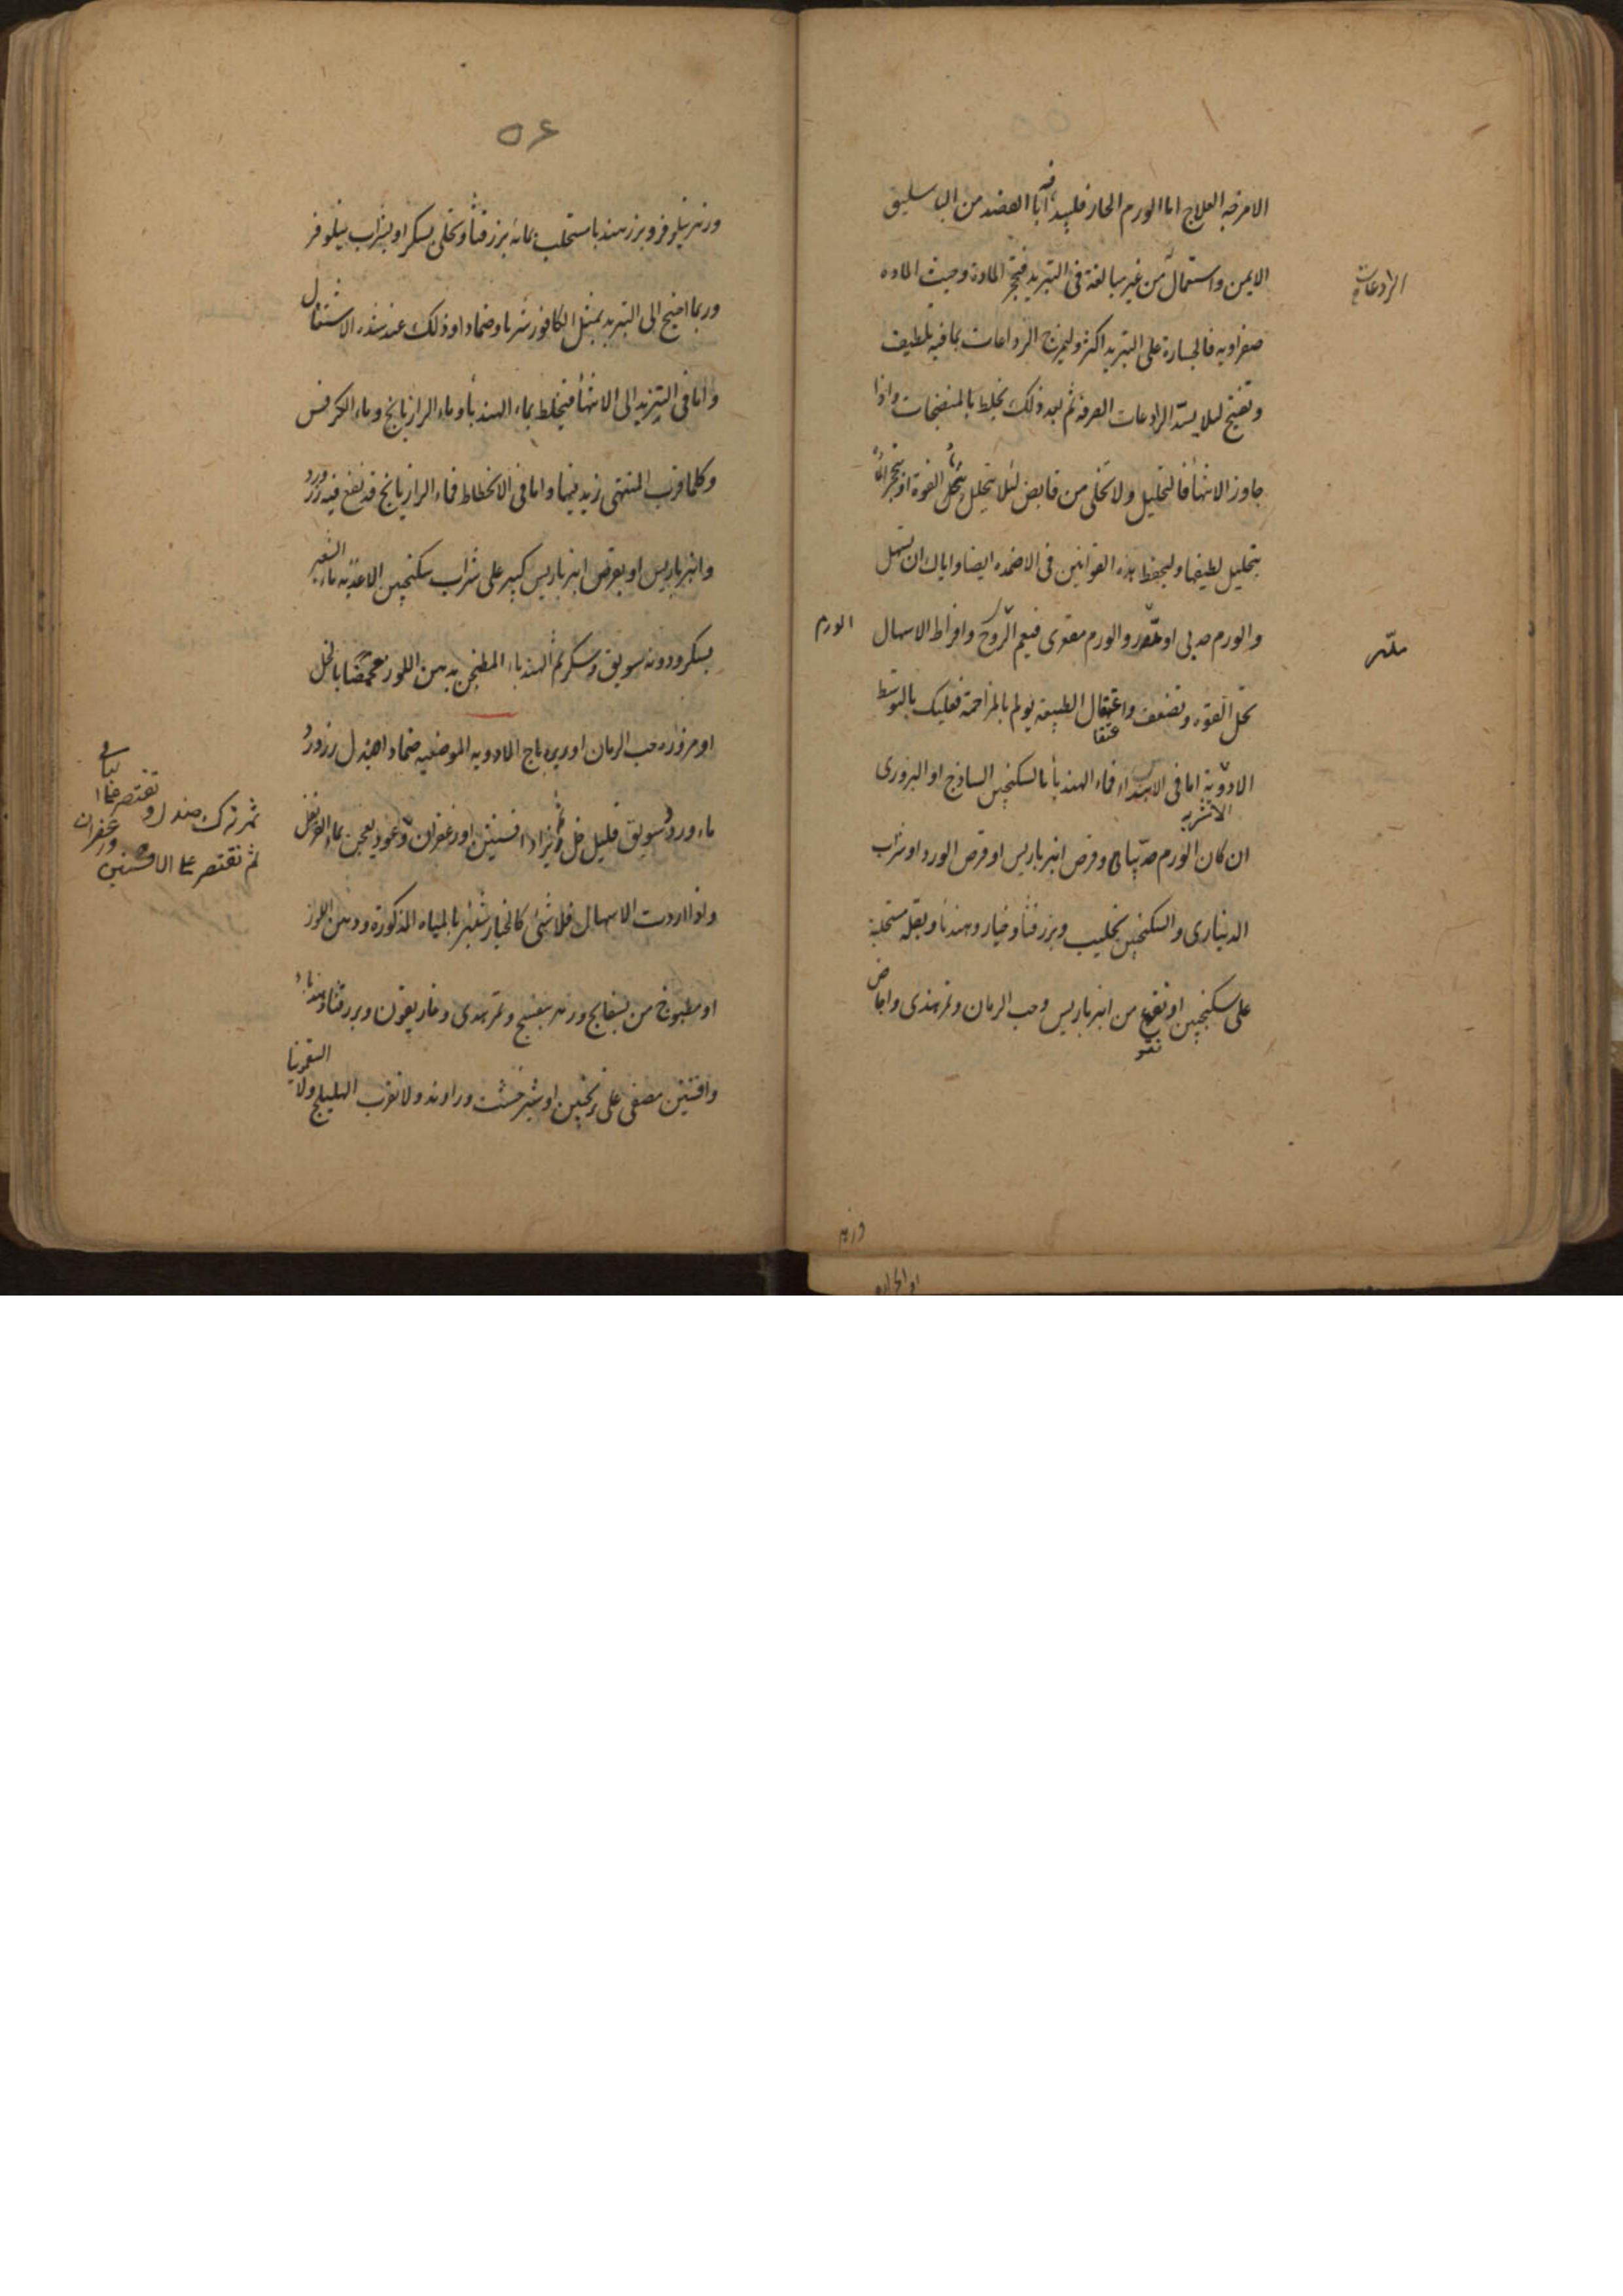 الامزجه العلاج اما الورم الحار فليبدأ فيه اولا بالفصد من الباسليق
الايمن واستعمال من غير مبالغة فى التبريد فتحجر المادة وحيث الماده
الرادعات
صفراويه فالجسارة على التبريد اكثر وليمزج الرداعات بما فيه تلطيف
وتفتيح ليلا يسد الرادعات الصرفة ثم بعد ذلك يخلط بالمنضجات واذا
جاوز الانتهأ فالتحليل ولا تخلى من قابض لئلا تتحلل القوة او يتحجر
بتحليل لطيفها وليحفظ هذه القوانين فى الاضمده ايضا واياك ان تسهل
والورم حدبى او تقعر والورم مقعرى فيعم الورم وافراط الاسهال
يحل القوه ويضعف واعتقال الطبيعة يولم بالمزاحمة فعليك بالتوسط
الادوية اما فى الابتداء فماء الهندبأ بالسكنجبين الساذج او البزورى
الاشربه
ان كان الورم حدبيا وقرص انبرباريس او قرص الورد او شراب
الدينارى والسكنجبين بحليب وبزر قثأ وخيار وهندبأ وبقلة مستحلبة
على سكنجبين او نقوع من انبرباريس وحب الرمان وتمر هندى واجاص
وزهر
٥٦
وزهر نيلوفر وبزر هندبا مستحلب بمائه بزر قثأ وتحلى بسكر او بشراب نيلوفر
وربما احتيج الى التبريد بمثل الكافور شربا وضمادا وذلك عند شده الاشتعال
واما فى التزيد الى الانتهأ فيخلط بماء الهندبأ وماء الرازيانج وماء الكرفس
وكلما قرب المنتهى زيد فيها واما فى الانحطاط فماء الرازيانج قد نقع فيه زر ورد
وانبرباريس او بقرص انبرباريس كبير على شراب سكنجبين الاغذيه ماء الشعير
بسكر ودونه سويق وسكر ثم الهندباء المطجن بدهن اللوز محمضا بالخل
او مزوره حب الرمان او زيرباج الادويه الموضعيه ضمادا صندل وزر ورد
ماء ورد وسويق قليل خل ثم يزاد افسنتين وزعفران وعود يعجن بماء القرنفل
ثم ترك صندل و
ثم تقتصر على الافسنتين
وزعفران
واذا اردت الاسهال فلا شئ كالخيار شنبر بالمياه المذكورة ودهن اللوز
او مطبوخ من بسفايج وزهر بنفسج وتمر هندى وغاريقون وبزر قثا وهندبا
وافسنتين مصفى على ترنجبين او شيرخشت وراوند ولا تقرب الهليلج ولا السقمونيا